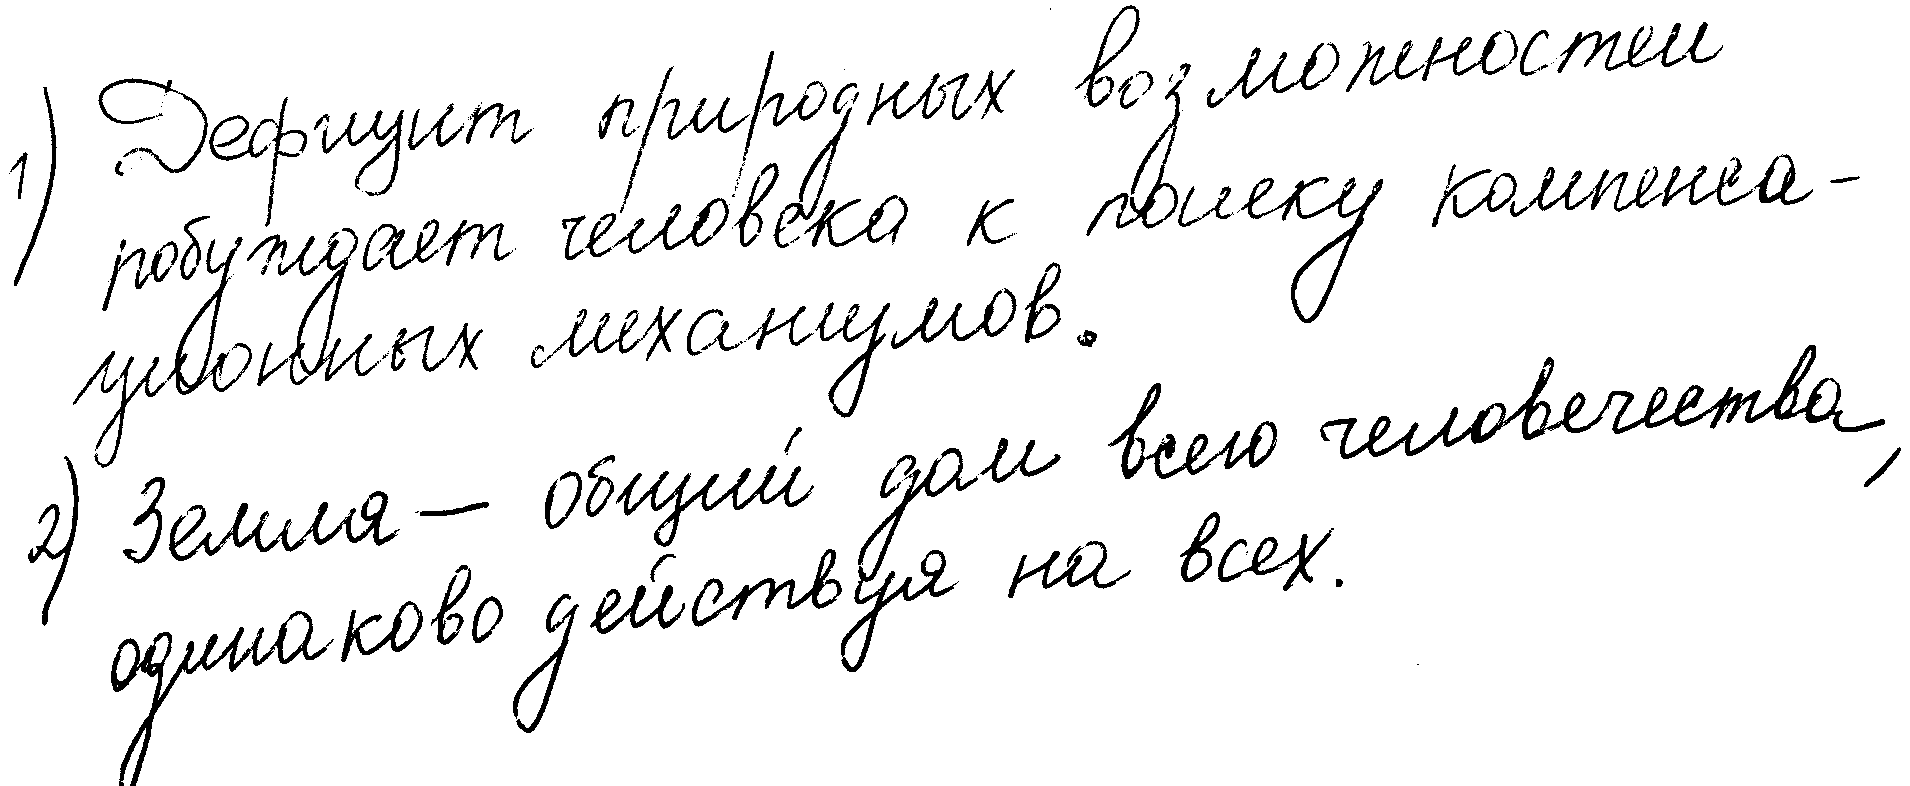 1) Дефицит природных возможностей
побуждает человека к поиску компенса-
ционных механизмов.
2) Земля — общий дом всего человечества,
одинаково действуя на всех.